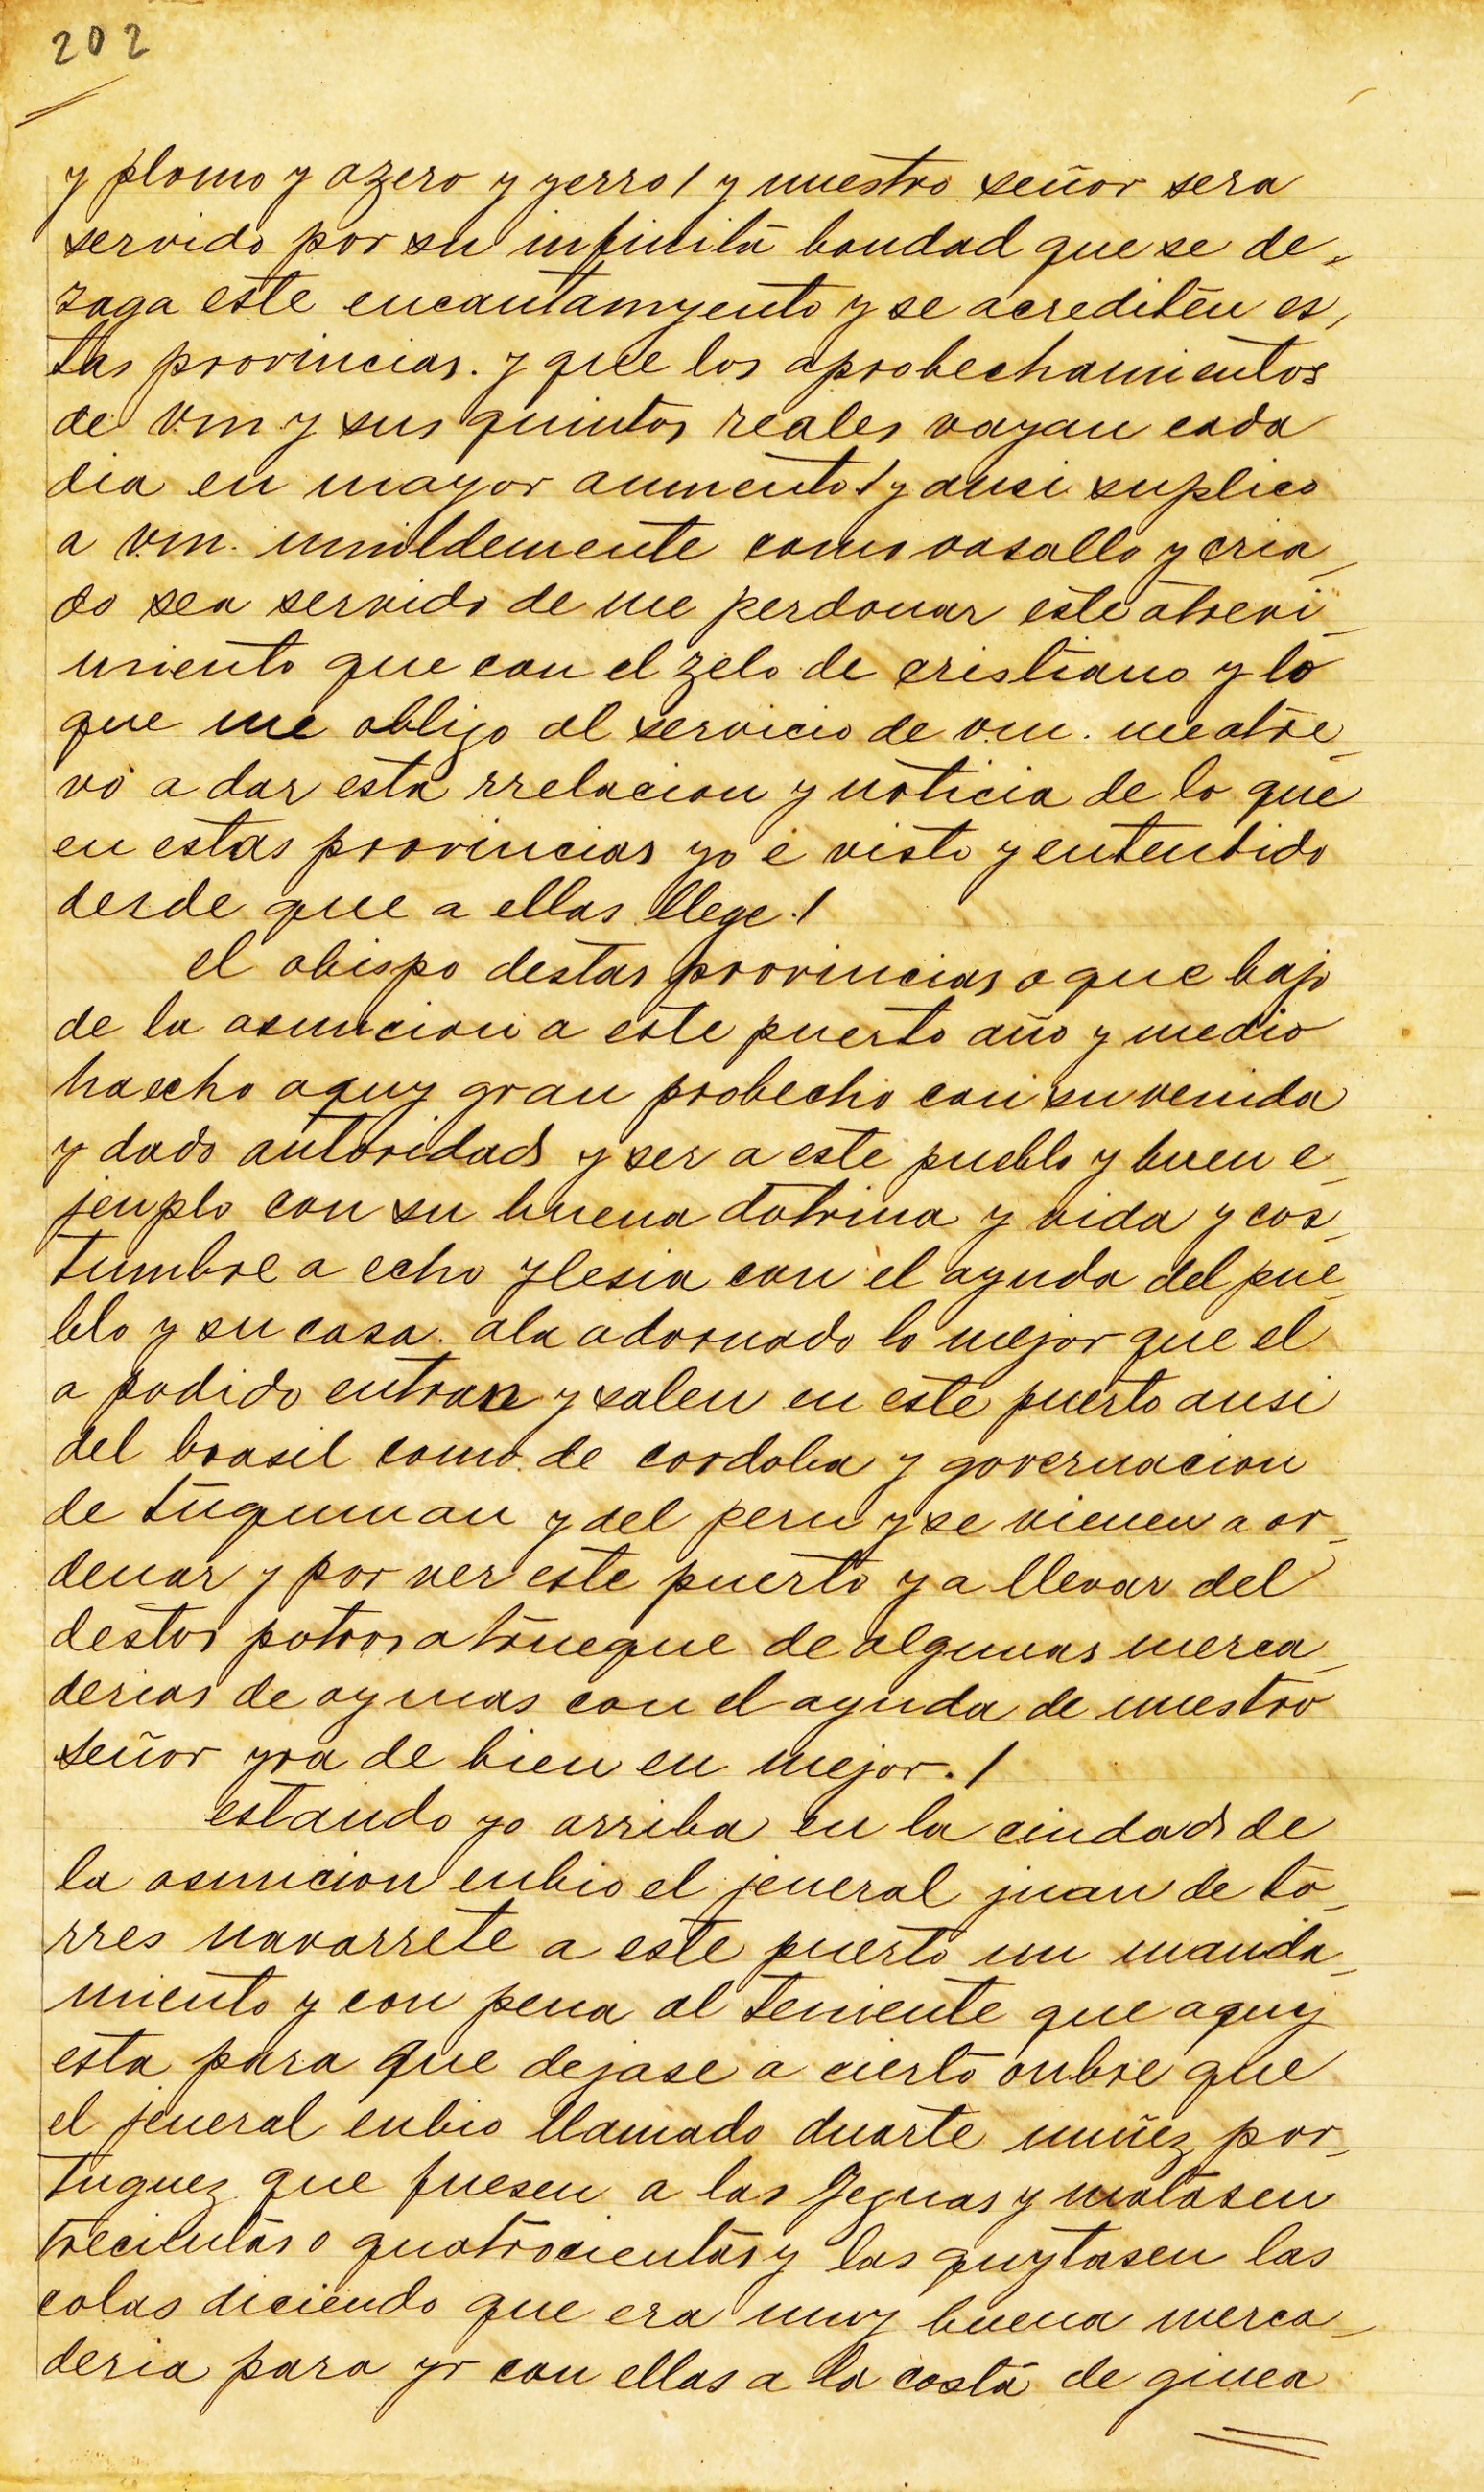 202
y plomo y azero y yerro / y nuestro señor sera
servido por su infinita bondad que se de-
zaga este encantamyento y se acrediten es-
tas provincias. y que los aprobechamientos
de vm y sus quintos reales vayan cada
dia en mayor aumento / y ansi suplico
a vm. umildemente como vasallo y cria-
do sea servido de me perdonar este atrevi-
miento que con el zelo de cristiano y lo
que me obligo al servicio de v.m. me atre-
vo a dar esta rrelacion y noticia de lo que
en estas provincias yo e visto y entendido
desde que a ellas llege. /
el obispo destas provincias a que bajo
de la asuncion a este puerto año y medio
ha echo aquy gran probecho con su venida
y dado autoridad y ser a este pueblo y buen e-
jenplo con su buena dotrina y vida y cos-
tumbre a echo yglesia con el ayuda del pue-
blo y su casa. ala adornado lo mejor que el
a podido entran y salen en este puerto ansi
del brasil como de cordoba y governacion
de tuquman y del peru y se vienen a or-
denar y por ver este puerto y a llevar del
destos potros a trueque de algunas merca-
derias de aymas con el ayuda de nuestro
señor yra de bien en mejor. /
estando yo arriba en la ciudad de
la asuncion enbio el jeneral juan de to-
rres navarrete a este puerto un manda-
miento y con pena al teniente que aquy
esta para que dejase a cierto onbre que
el jeneral enbio llamado duarte nuñez por-
tuguez que fuesen a las yeguas y matasen
trecientas o quatrocientas y las quytasen las
colas diciendo que era muy buena merca-
deria para yr con ellas a la costa de ginea